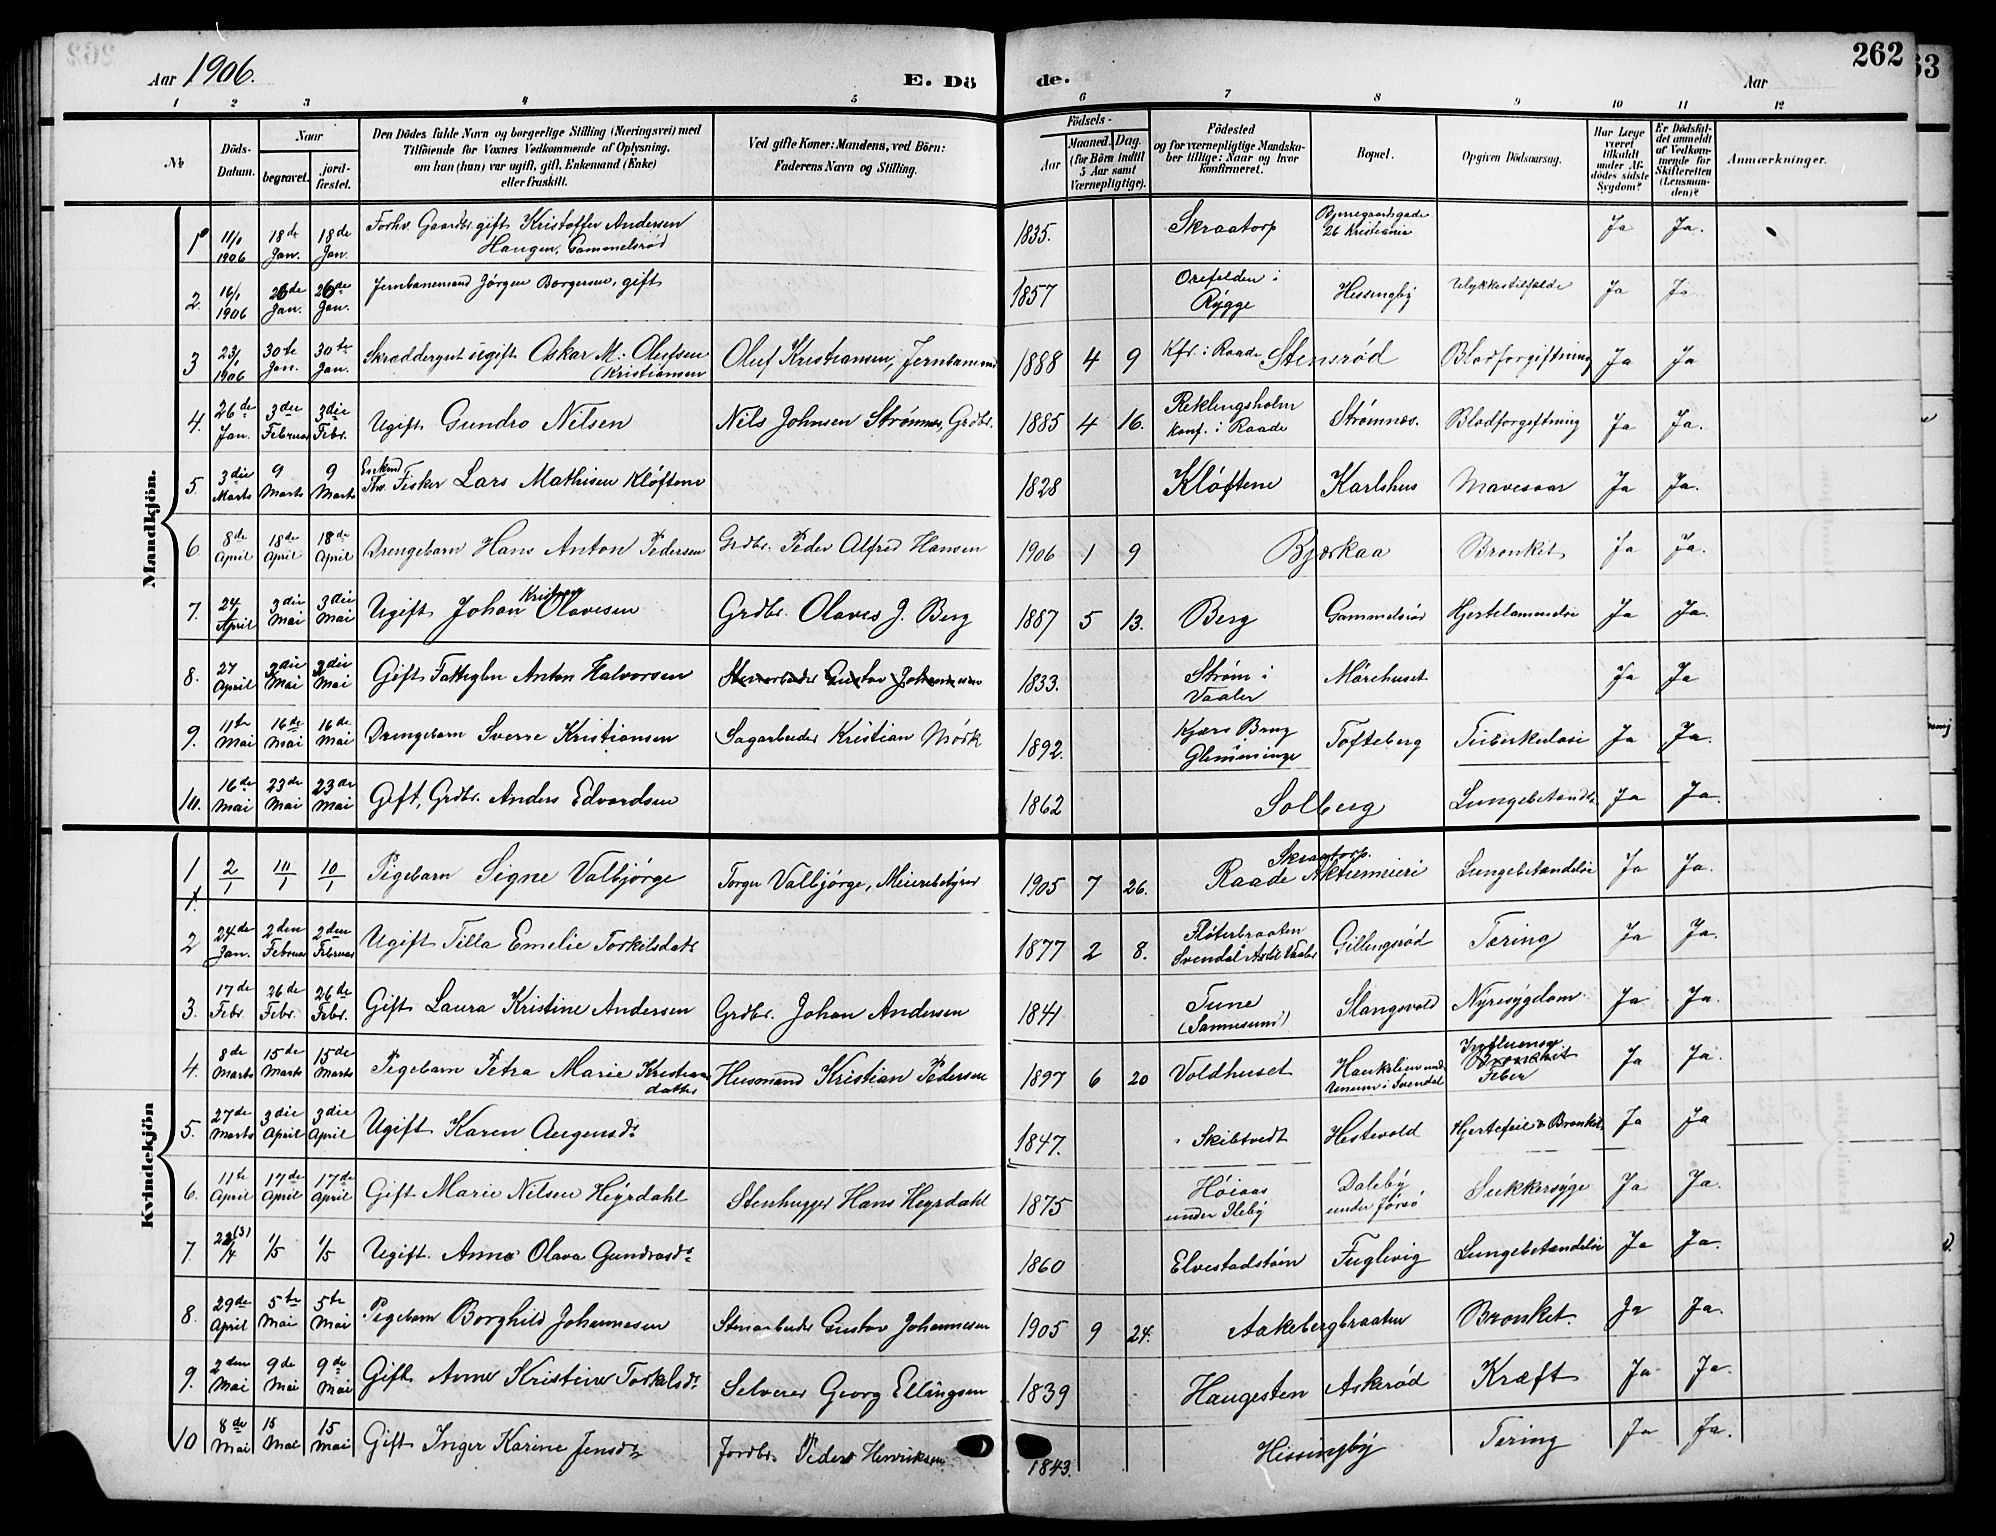 262
Aar 1906.
E. Dö de.
Aar
1 2 3 4 5 6 7 8 9 10 11 12
No
Döds-Datum.
Naar
begravet.
jord-fæstet.
Den Dödes fulde Navn og borgerlige Stilling (Næringsvei) med
Tilföiende for Voxnes Vedkommende af Oplysning.
om han (hun) var ugift, gift, Enkemand (Enke)
eller fraskilt.
Ved gifte Koner: Mandens, ved Börn:
Faderens Navn og Stilling.
Födsels-
Aar
Maaned. Dag.
(for Börn indtil
5 Aar samt
Værnepligtige).
Födested
og for værnepligtige Mandska-
ber tillige: Naar og hvor
konfirmeret.
Bopæl.
Opgiven Dödsaarsag.
Har Læge
været
tilkaldt
under Af-
dödes sidste
Sygdom?
Er Dödsfal-
det anmeldt
af Vedkom-
mende for
Skifteretten
(Lensman-
den)?
Anmærkninger.
Mandkjön.
1 11/1 1906 18de Jan. 18de Jan. Forhv. Gaardbr. gift Kristoffer Andersen Haugen, Gammelsrød 1835. Skraatorp Bjerregaardsgade 26 Kristiania Ja Ja.
2. 16/1 1906 26de Jan. 26de Jan. Jernbanemand Jörgen Borgersen, gift 1857 Orefelden i Rygge Hissingby Ulykkestilfælde Ja Ja
3 23/1 1906 30te Jan. 30te Jan. Skræddergut ugift Oskar M: Olufsen (Kristiansen Oluf Kristiansen, Jernbanemand 1888 4 9 Kfr. i Raade Stensrød Blodforgiftning Ja Ja
4. 26de Jan. 3die Februar 3die Febr. Ugift Gundro Nilsen Nils Johnsen Strømnes, Grdbr. 1885 4 16. Reklingsholm Konf. i Raade Strømnæs. Blodforgiftning Ja Ja.
5. 3die Marts 9 Marts 9 Marts Enkemd. Fhv. Fisker Lars Mathisen Kløftene 1828 Kløftene Karlshus Mavesaar Ja Ja.
6. 8de April 18de April 18de April Drengebarn Hans Anton Pedersen Grdbr. Peder Alfred Hansen 1906 1 9 Bjørkaa Bronkit Ja Ja.
7. 24 April 3die Mai 3die Mai Ugift Johan Kristian Olavesen Grdbr. Olaves J. Berg 1887 5 13. Berg Gammelsrød Hjertelammelse Ja Ja.
8. 27 April 3die Mai 3die Mai Gift Fattiglm Anton Halvorsen Stenarbeider Gustav Johannesen 1833. Strøm i Vaaler Mörehuset Ja Ja
9. 11te Mai 16de Mai 16de Mai Drengebarn Sverre Kristiansen Sagarbeider Kristian Mørk 1892. Kjærs Brug Glemminge Tofteberg Tuberkulosi Ja Ja.
10. 16de Mai 23de Mai 23de Mai Gift, Grdbr. Anders Edvardsen 1862 Solberg Lungebetændse Ja Ja.
Kvindekjön
1 2/1 10/1 10/1 Pigebarn Signe Valbjörge Torger Valbjörge, Meieribestyrer 1905 7 26. Skraatorp. Raade Aktiemeieri Lungebetændelse Ja Ja.
2 24de Jan. 2den Februar 2den Februar Ugift Tilla Emelie Torkilsdatr 1877 2 8. Fløterbraaten Svendal Vaaler Gillingsrød Tæring Ja Ja.
3. 17de Febr. 26de Febr. 26de Febr. Gift Laura Kristine Andersen Grdbr. Johan Andersen 1841 Tune Slangsvold Nyresygdom Ja Ja.
4. 8de Marts 15de Marts 15de Marts Pigebarn Petra Marie Kristiansdatter Husmand Kristian Pedersen 1897 6 20 Voldhuset Haukelien und. Unum i Svendal Influensa Bronkit Feber Ja Ja.
5. 27de Marts 3die April 3die April Ugift Karen Augensdr 1847. Skibtvedt Hestevold Hjertefeil & Bronkit Ja Ja
6. 11te April 17de April 17de April Gift Marie Nilsen Heyrdahl Stenhugger Hans Heyrdahl 1875 Høiaas under Ileby Daleby under Jørsø Sukkersyge Ja Ja.
7. 22(3)/4 1/5 1/5 Ugift. Anne Olava Gundrosdr 1860 Elvestadstøen Fuglevig Lungebetændelse Ja Ja.
8. 29de April 5te Mai 5te Mai Pigebarn Borghild Johannesen Stenarbeider Gustav Johannesen 1905 9 24. Aakebergbraaten Bronkit. Ja Ja.
9. 2den Mai 9de Mai 9de Mai Gift Anne Kristine Torkelsdr Selveier Georg Ellingsen 1839 Haugesten Askerød Kræft Ja Ja.
10 8de Mai 15 Mai 15 Mai Gift Inger Karine Jensdr Jordbr. Peder Henriksen 1843. Hissingby Tering Ja Ja.